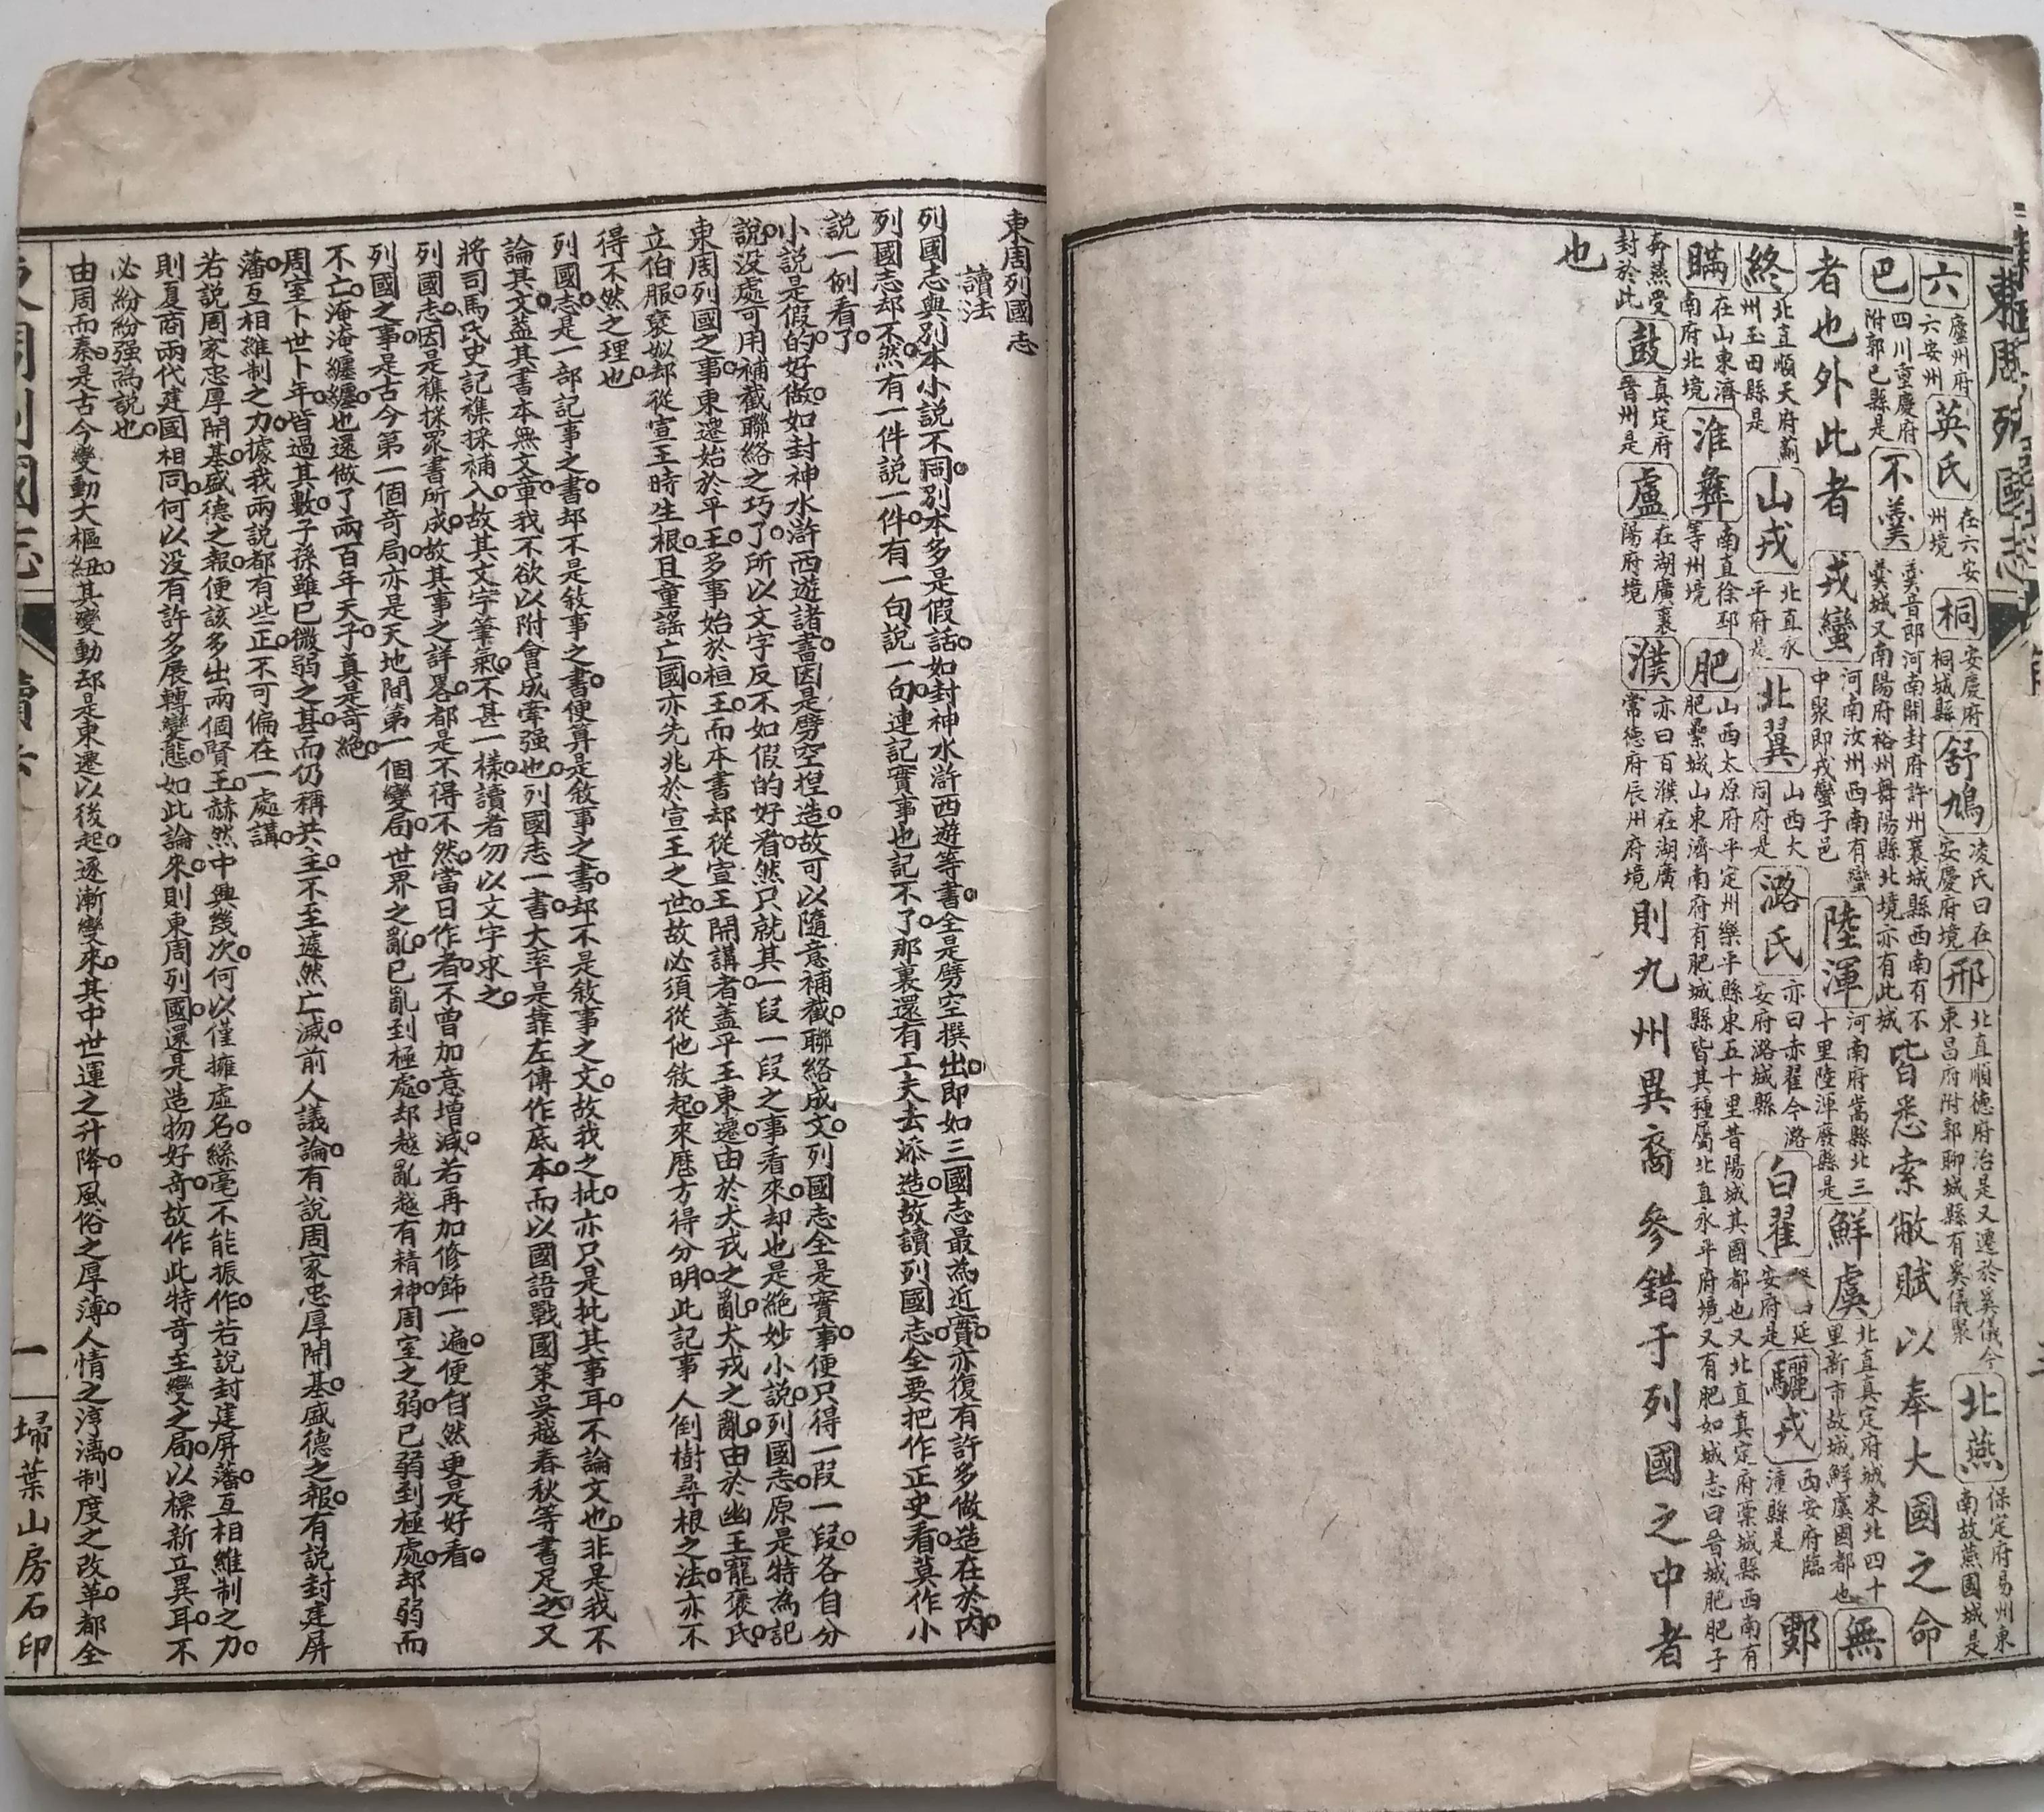 東周列國志
六廬州府六安州英氏在六安州境桐安慶府桐城縣舒鳩凌氏曰在安慶府境邢北直順德府治是又遷於夷儀今東昌府附郭聊城縣有夷儀聚北燕保定府易州東南故燕國城是
巴四川重慶府附郭巴縣是不羹羹音郎河南開封府許州襄城縣西南有不羹城又南陽府裕州舞陽縣北境亦有此城皆悉索敝賦以奉大國之命
者也外此者戎蠻河南汝州西南有蠻中聚即戎蠻子邑陸渾河南府嵩縣北三十里陸渾廢縣是鮮虞北直真定府城東北四十里新市故城鮮虞國都也無
終北直順天府薊州玉田縣是山戎北直永平府是北翟山西大同府是潞氏亦曰赤翟今潞安府潞城縣白翟延安府是驪戎西安府臨潼縣是鄋
瞞在山東濟南府北境淮彝南直徐邳等州境肥山西太原府平定州樂平縣東五十里昔陽城其國都也又北直真定府藁城縣西南有肥纍城山東濟南府有肥城縣皆其種屬北直永平府境又有肥如城志曰晉城肥肥子
奔燕受封於此鼓真定府晉州是盧在湖廣襄陽府境濮亦曰百濮在湖廣常德府辰州府境則九州異裔參錯于列國之中者
也
東周列國志
讀法
列國志與別本小說不同。別本多是假話。如封神水滸西遊等書。全是劈空撰出。即如三國志最為近實。亦復有許多做造在於內。
列國志却不然。有一件說一件。有一句說一句。連記實事也記不了。那裏還有工夫去添造。故讀列國志。全要把作正史看。莫作小
說一例看了。
小說是假的。好做。如封神水滸西遊諸書。因是劈空捏造。故可以隨意補截。聯絡成文。列國志全是實事。便只得一段一段。各自分
說。沒處可用補截聯絡之巧了。所以文字反不如假的好看。然只就其一段一段之事看來。却也是絕妙小說。列國志原是特為記
東周列國之事。東遷始於平王。多事始於桓王。而本書却從宣王開講者。蓋平王東遷。由於犬戎之亂。犬戎之亂。由於幽王寵褒氏。
立伯服。褒姒却從宣王時生根。且童謠亡國。亦先兆於宣王之世。故必須從他敘起。來歷方得分明。此記事人倒樹尋根之法。亦不
得不然之理也。
列國志。是一部記事之書。却不是敘事之書。便算是敘事之書。却不是敘事之文。故我之批。亦只是批其事耳。不論文也。非是我不
論其文。蓋其書本無文章。我不欲以附會成牽强也。列國志一書。大率是靠左傳作底本。而以國語戰國策吳越春秋等書足之。又
將司馬氏史記襍採補入。故其文字筆氣。不甚一樣。讀者勿以文字求之。
列國志。因是襍採眾書所成。故其事之詳畧。都是不得不然。當日作者。不曾加意增減。若再加修飾一遍。便自然更是好看。
列國之事。是古今第一個奇局。亦是天地間第一個變局。世界之亂。已亂到極處。却越亂越有精神。周室之弱。已弱到極處。却弱而
不亡。淹淹纏纏。也還做了兩百年天子。真是奇絕。
周室卜世卜年。皆過其數。子孫雖已微弱之甚。而仍稱共主。不至遽然亡滅。前人議論。有說周家忠厚開基。盛德之報。有說封建屏
藩。互相維制之力。據我兩說都有些正。不可偏在一處講。
若說周家忠厚開基。盛德之報。便該多出兩個賢王。赫然中興幾次。何以僅擁虛名。絲毫不能振作。若說封建屏藩。互相維制之力。
則夏商兩代建國相同。何以沒有許多展轉變態。如此論來。則東周列國。還是造物好奇。故作此特奇至變之局。以標新立異耳。不
必紛紛强為說也。
由周而秦。是古今變動大樞紐。其變動却是東遷以後起。逐漸變來。其中世運之升降。風俗之厚薄。人情之淳漓。制度之改革。都全
東周列國志 讀法 一 埽葉山房石印